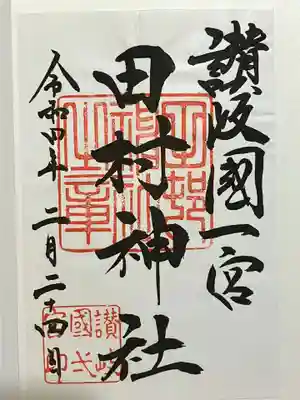 讃岐國一宮
田村神社
令和四年二月二十四日